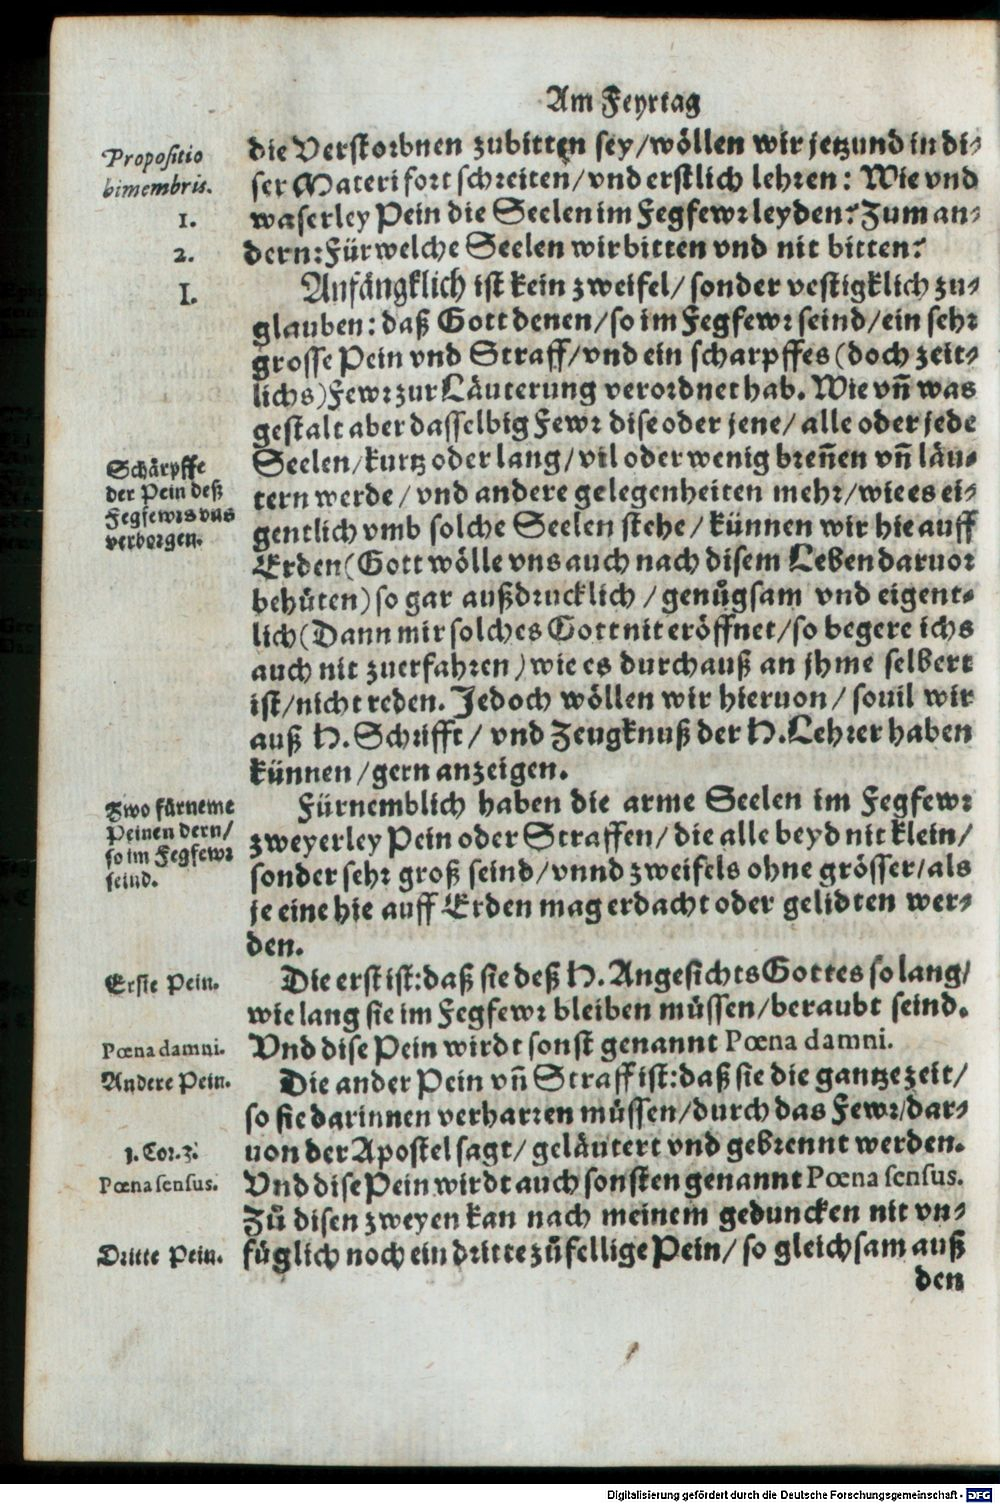 Am Feyrtag
Propositio
bimembris.
1.
2.
die Verstorbnen zubitten sey/wöllen wir jetzund in di-
ser Materi fort schreiten/vnd erstlich lehren: Wie vnd
waserley Pein die Seelen im Fegfewr leyden? Zum an-
dern: Für welche Seelen wir bitten vnd nit bitten?
I.
Anfängklich ist kein zweifel/sonder vestigklich zu-
glauben: daß Gott denen/so im Fegfewr seind/ein sehr
grosse Pein vnd Straff/vnd ein scharpffes (doch zeit-
lichs) Fewr zur Läuterung verordnet hab. Wie vñ was
gestalt aber dasselbig Fewr dise oder jene/alle oder jede
Schärpffe
der Pein deß
Fegfewrs vns
verborgen.
Seelen/kurtz oder lang/vil oder wenig breñen vñ läu-
tern werde/vnd andere gelegenheiten mehr/wie es ei-
gentlich vmb solche Seelen stehe/künnen wir hie auff
Erden (Gott wölle vns auch nach disem Leben daruor
behüten) so gar außdrucklich/genůgsam vnd eigent-
lich (Dann mir solches Gott nit eröffnet/so begere ichs
auch nit zuerfahren) wie es durchauß an jhme selbert
ist/nicht reden. Jedoch wöllen wir hieruon/souil wir
auß H. Schrifft/vnd Zeugknuß der H. Lehrer haben
künnen/gern anzeigen.
Zwo fürneme
Peinen dern/
so im Fegfewr
seind.
Fürnemblich haben die arme Seelen im Fegfewr
zweyerley Pein oder Straffen/die alle beyd nit klein/
sonder sehr groß seind/vnnd zweifels ohne grösser/als
je eine hie auff Erden mag erdacht oder gelidten wer-
den.
Erste Pein.
Die erst ist: daß sie deß H. Angesichts Gottes so lang/
wie lang sie im Fegfewr bleiben müssen/beraubt seind.
Pœna damni.
Vnd dise Pein wirdt sonst genannt Pœna damni.
Andere Pein.
Die ander Pein vñ Straff ist: daß sie die gantze zeit/
so sie darinnen verharren müssen/durch das Fewr/dar-
1. Cor. 3.
uon der Apostel sagt/geläutert vnd gebrennt werden.
Pœna sensus.
Vnd dise Pein wirdt auch sonsten genannt Pœna sensus.
Zů disen zweyen kan nach meinem geduncken nit vn-
Dritte Pein.
füglich noch ein dritte zůfellige Pein/so gleichsam auß
den
Digitalisierung gefördert durch die Deutsche Forschungsgemeinschaft - DFG